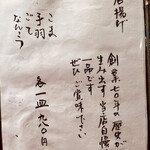 唐揚げ
創業七〇年の歴史が
生みだす当店自慢
一品です
ぜひご賞味下さい
こま
手羽
ごて
なんこつ
各一皿 九八〇円